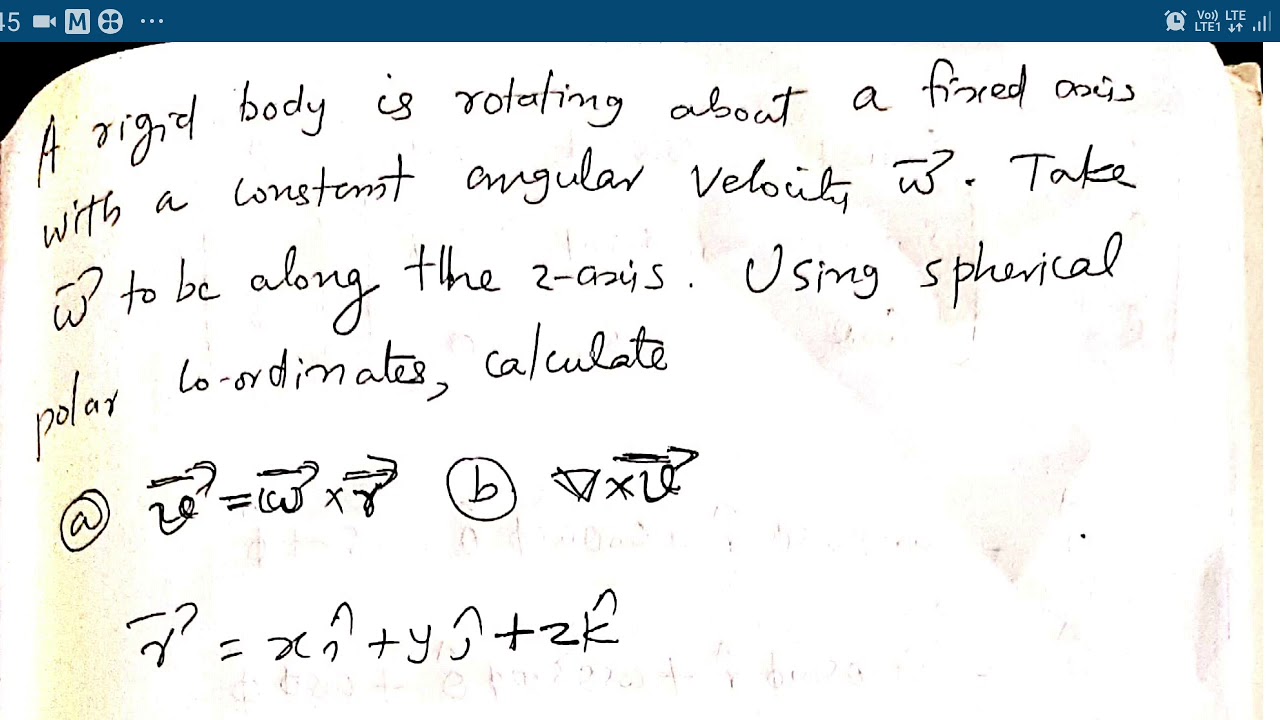 45 M ... Vo)) LTE LTE1
A rigid body is rotating about a fixed axis
with a constant angular velocity ω⃗. Take
ω⃗ to be along the z-axis. Using spherical
polar co-ordinates, calculate
ⓐ v⃗ = ω⃗ × r⃗ ⓑ ∇ × v⃗
r⃗ = xî + yĵ + zk̂